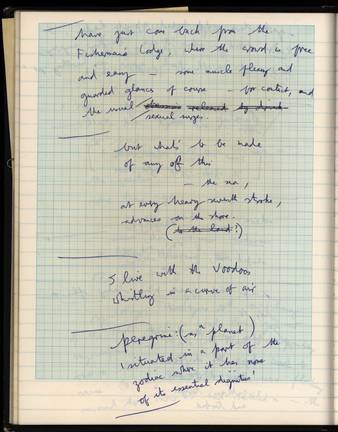 have just come back from the
Fisherman's Lodge, where the crowd is free
and easy – some muscle flexing and
guarded glances of course – for contact, and
the usual released by drink
sexual surges.
but what's to be made
of any of this
– the sea,
at every heavy seventh stroke,
advances on the shore.
(to the land?)
I live with the Voodoos
whistling in a curve of air
peregrine: (as, a planet)
'situated in a part of the
zodiac where it has none
of its essential dignities'